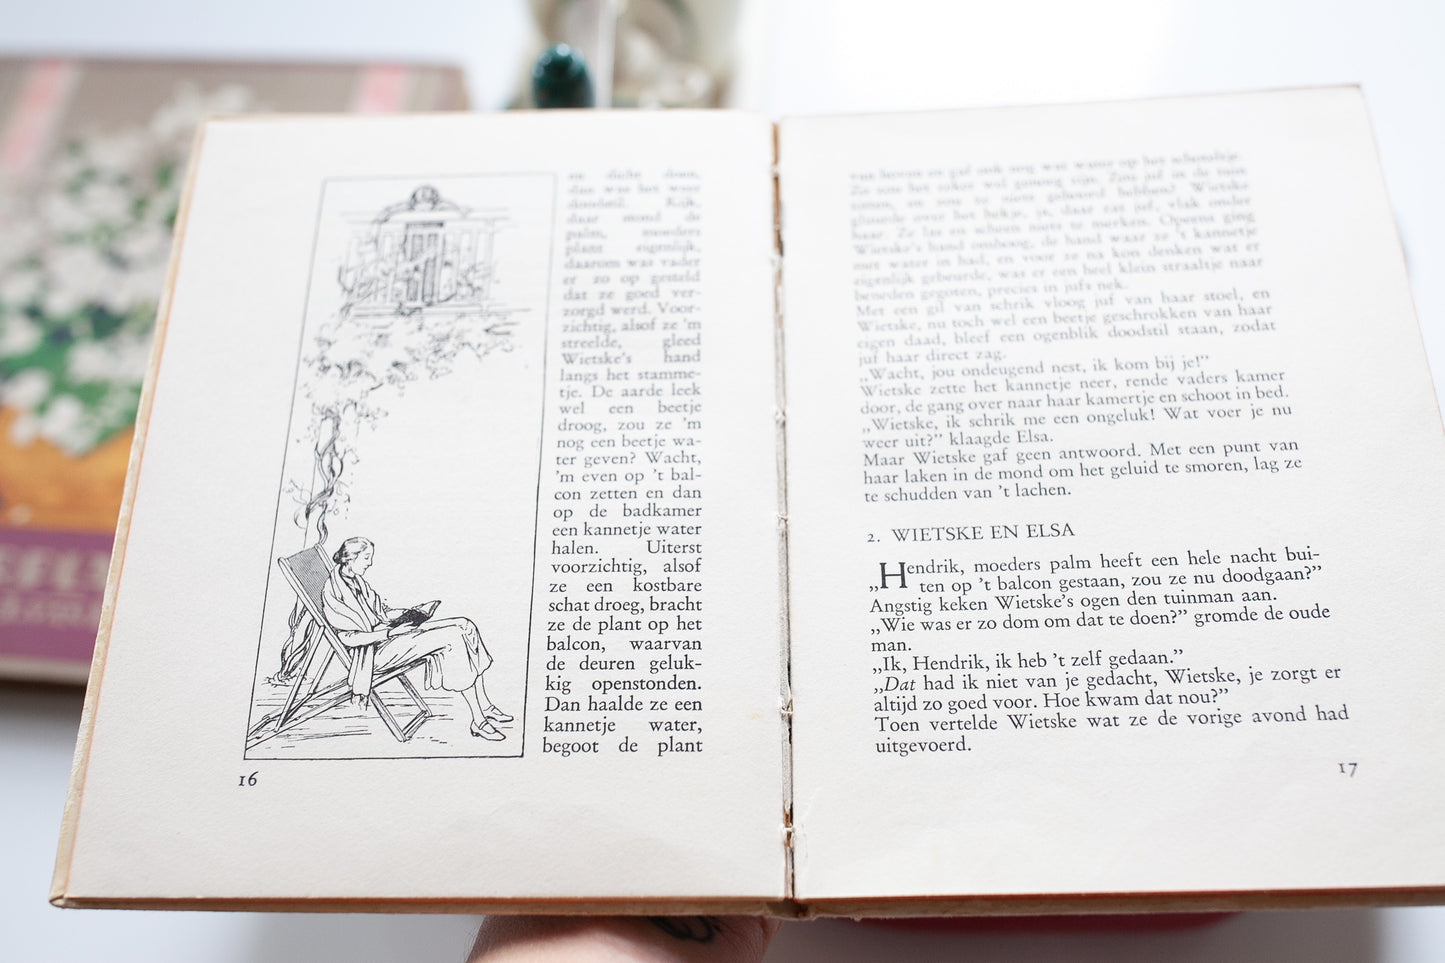 en dicht doen,
dan was het weer
doodstil. Kijk,
daar stond de
palm, moeders
plant eigenlijk,
daarom was vader
er zo op gesteld
dat ze goed ver-
zorgd werd. Voor-
zichtig, alsof ze 'm
streelde, gleed
Wietske's hand
langs het stamme-
tje. De aarde leek
wel een beetje
droog, zou ze 'm
nog een beetje wa-
ter geven? Wacht,
'm even op 't bal-
con zetten en dan
op de badkamer
een kannetje water
halen. Uiterst
voorzichtig, alsof
ze een kostbare
schat droeg, bracht
ze de plant op het
balcon, waarvan
de deuren geluk-
kig openstonden.
Dan haalde ze een
kannetje water,
begoot de plant
16
van boven en gaf ook nog wat water op het schoteltje.
Zo zou het zeker wel genoeg zijn. Zou juf in de tuin
staan, en zou te niets gebeurd hebben? Wietske
gluurde over het hekje, ja, daar zat juf, vlak onder
haar. Ze las en scheen niets te merken. Opeens ging
Wietske's hand omhoog, de hand waar ze 't kannetje
met water in had, en voor ze na kon denken wat er
eigenlijk gebeurde, was er een heel klein straaltje naar
beneden gegoten, precies in juf's nek.
Met een gil van schrik vloog juf van haar stoel, en
Wietske, nu toch wel een beetje geschrokken van haar
eigen daad, bleef een ogenblik doodstil staan, zodat
juf haar direct zag.
„Wacht, jou ondeugend nest, ik kom bij je!”
Wietske zette het kannetje neer, rende vaders kamer
door, de gang over naar haar kamertje en schoot in bed.
„Wietske, ik schrik me een ongeluk! Wat voer je nu
weer uit?” klaagde Elsa.
Maar Wietske gaf geen antwoord. Met een punt van
haar laken in de mond om het geluid te smoren, lag ze
te schudden van 't lachen.
2. WIETSKE EN ELSA
„Hendrik, moeders palm heeft een hele nacht bui-
ten op 't balcon gestaan, zou ze nu doodgaan?”
Angstig keken Wietske's ogen den tuinman aan.
„Wie was er zo dom om dat te doen?” gromde de oude
man.
„Ik, Hendrik, ik heb 't zelf gedaan.”
„Dat had ik niet van je gedacht, Wietske, je zorgt er
altijd zo goed voor. Hoe kwam dat nou?”
Toen vertelde Wietske wat ze de vorige avond had
uitgevoerd.
17